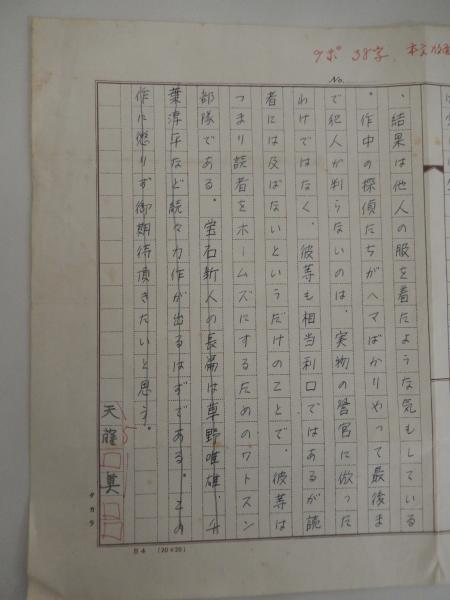 9ポ 38字、本文
No.
、結果は他人の服を着たような気もしている
。作中の探偵たちがヘマばかりやって最後ま
で犯人が判らないのは、実物の警官に倣った
わけではなく、彼等も相当利口ではあるが読
者には及ばないというだけのことで、彼等は
つまり読者をホームズにするためのワトスン
部隊である。宝石新人の長篇は草野唯雄、
葉淳平など続々力作が出るはずである。この
作に懲りず御期待頂きたいと思う。
天藤真
タカラ
B4 (20×20)